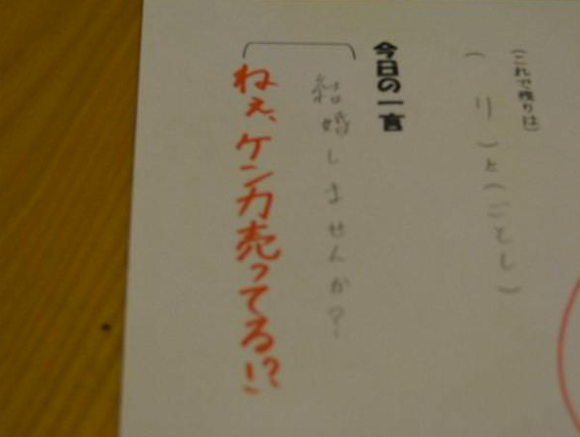 (これで残りは)
( リ )と(ごとし)
今日の一言
結婚しませんか?
ねぇ、ケンカ売ってる!?